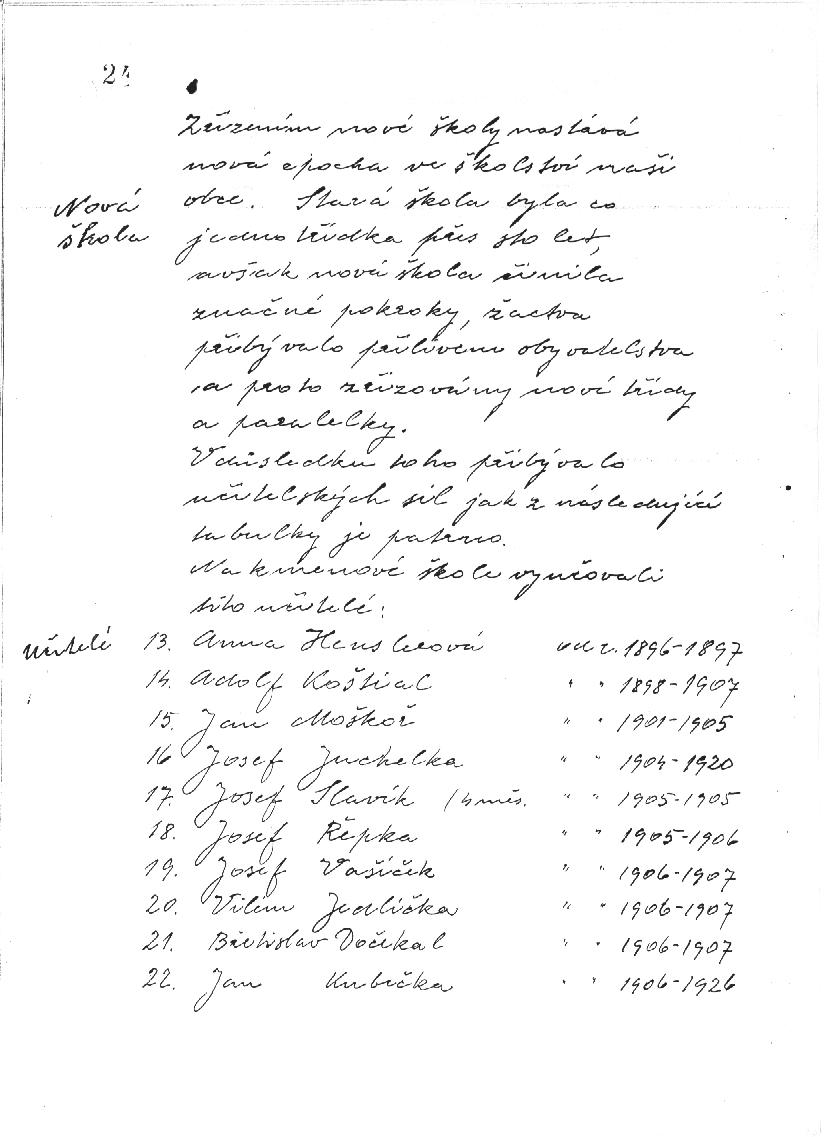 24
Zřízením nové školy nastává
nová epocha ve školství naší
Nová obce. Stará škola byla co
škola jednotřídka přes sto let,
avšak nová škola činila
značné pokroky, žactva
přibývalo přílivem obyvatelstva
a proto zřizovány nové třídy
a paralelky.
V důsledku toho přibývalo
učitelských sil jak z následující
tabulky je patrno.
Na kmenové škole vyučovali
tito učitelé:
učitelé 13. Anna Henslerová od r. 1896-1897
14. Adolf Koštial " " 1898-1907
15. Jan Moškoř " " 1901-1905
16 Josef Juchelka " " 1904-1920
17. Josef Slavík /4 měs. " " 1905-1905
18. Josef Řepka " " 1905-1906
19. Josef Vašíček " " 1906-1907
20. Vilém Jedlička " " 1906-1907
21. Břetislav Dočekal " " 1906-1907
22. Jan Kubíčka " " 1906-1926